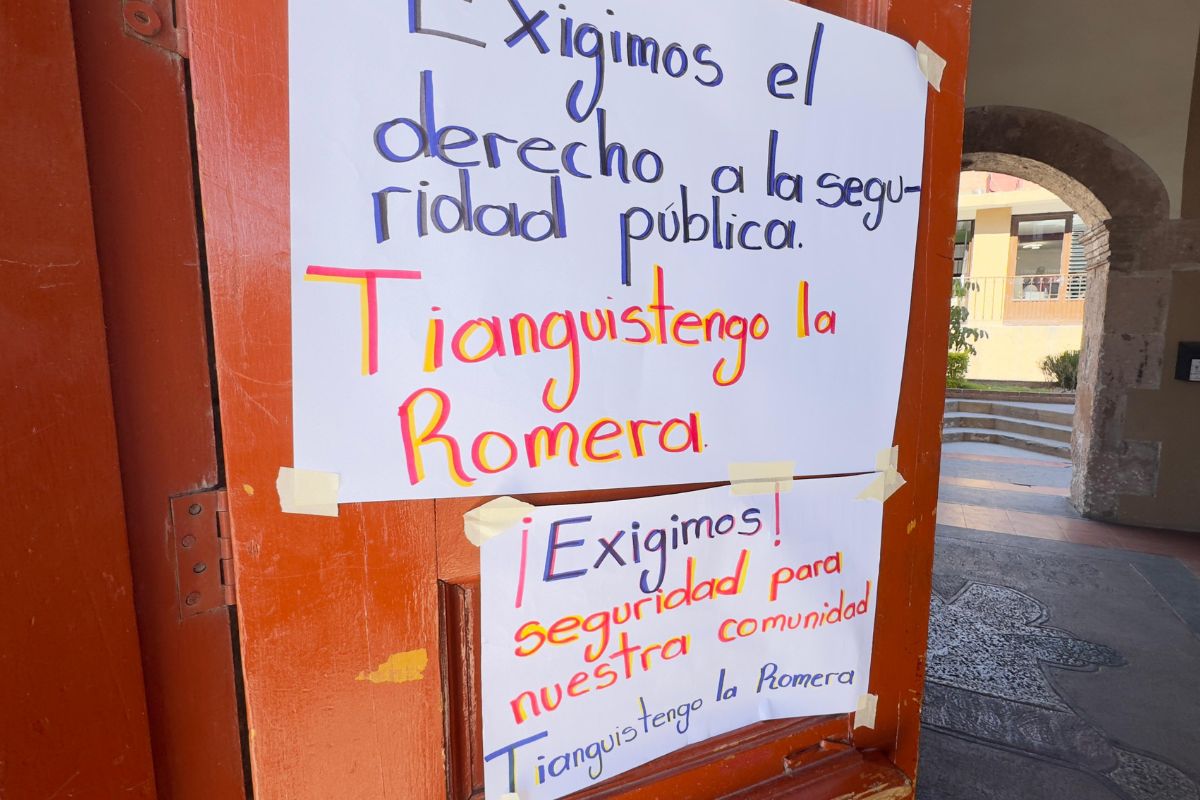 Exigimos el
derecho a la segu-
ridad pública.
Tianguistengo la
Romera.
¡Exigimos!
seguridad para
nuestra comunidad
Tianguistengo la Romera